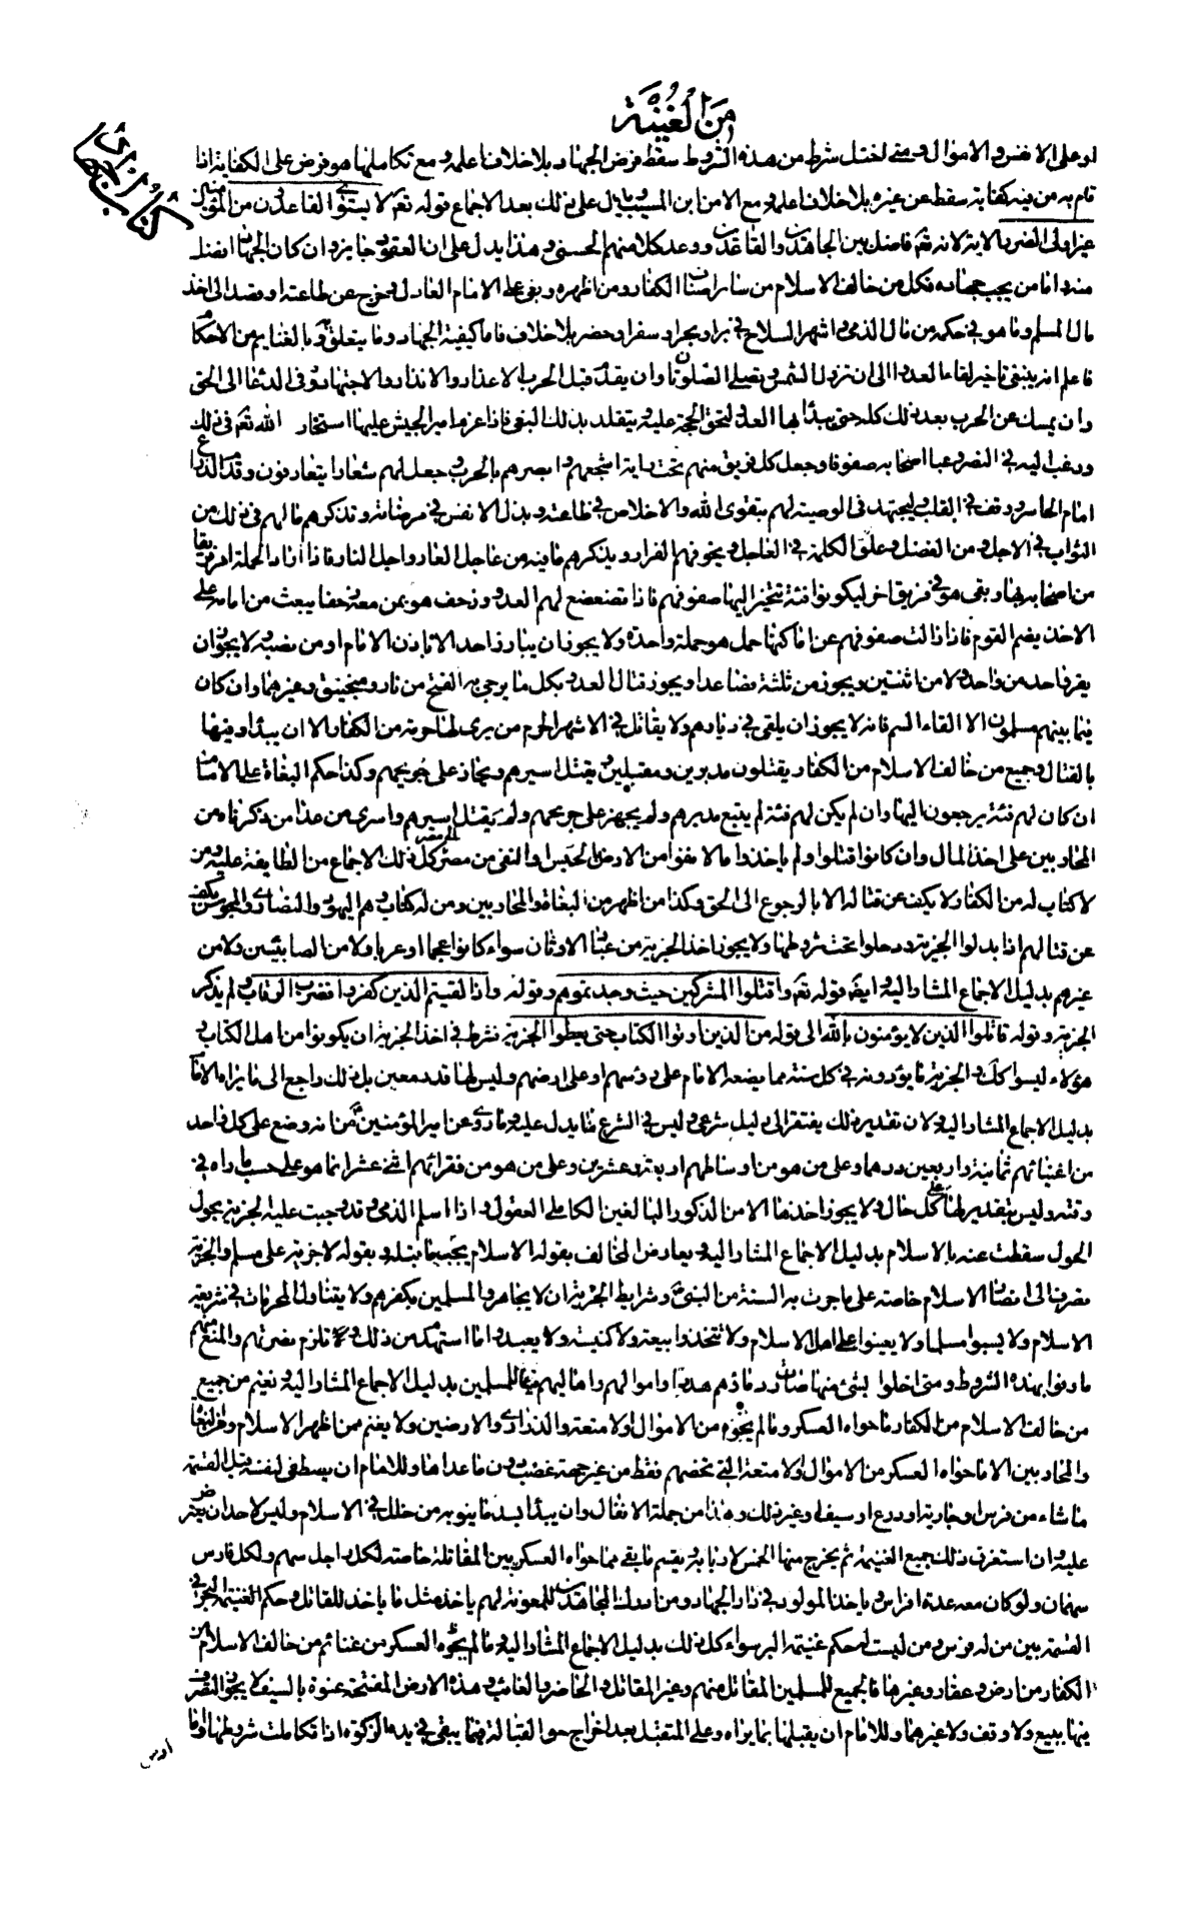 من الغنية
كتاب الجهاد
او على الانفس والاموال ومتى اختل شرط من هذه الشروط سقط فرض الجهاد بلا خلاف اعلمه ومع تكاملها هو فرض على الكفاية اذا
قام به من فيه كفاية سقط عن غيره بلا خلاف اعلمه مع الا من ابن المسيب دليل على ذلك بعد الاجماع قوله تعم لا يستوى القاعدون من المؤمنين
غير اولى الضرر الاية لانه تعم فاضل بين المجاهدين والقاعدين ووعد كلا منهم الحسنى وهذا يدل على ان القعود جايز وان كان الجهاد افضل
منه واما من يجب جهاده فكل من خالف الاسلام من ساير اصناف الكفار ومن اظهره وبغى على الامام العادل وخرج عن طاعته او قصد الى اخذ
مال المسلم وما هو في حكمه من مال الذمى واشهر السلاح في بر او بحر او سفر او حضر بلا خلاف فاما كيفية الجهاد وما يتعلق به وبالغنايم من الاحكام
فاعلم انه ينبغى تاخير لقاء العدو الى ان تزول الشمس وتصلى الصلوتان وان يقدم قبل الحرب الاعذار والانذار والاجتهاد في الدعاء الى الحق
وان يمسك عن الحرب بعد ذلك كله حتى يبدأ بها العدو لتحق الحجة عليه ويتقلد بذلك البغى فاذا عزم امير الجيش عليها استخار الله تعم في ذلك
ورغب اليه في النصر وعبا اصحابه صفوفا وجعل كل فريق منهم تحت راية اشجعهم وابصرهم بالحرب وجعل لهم شعارا يتعارفون وقدم الدراع
امام الحاسر ووقف في القلب وليجتهد في الوصية لهم بتقوى الله والاخلاص في طاعته وبذل الانفس في مرضاته ويذكرهم ما لهم في ذلك من
الثواب في الاجل ومن الفضل وعلو الكلمة في العاجل ويخوفهم الفرار ويذكرهم ما فيه من عاجل العار واجل النار فاذا اراد الحملة امر فريقا
من اصحابه بها وبقى هو في فريق اخر ليكونوا فئة تتحيز اليها صفوفهم فاذا تضعضع لهم العدو وزحف هو بمن معه زحفا يبعث من امامه على
الاخذ بكظم القوم فاذا زالت صفوفهم عن اماكنها حمل هو حملة واحدة ولا يجوز ان يبارز احد الا باذن الامام او من نصبه ولا يجوز ان
يفر واحد من واحد ولا من اثنين ويجوز من ثلثة فصاعدا ويجوز قتال العدو بكل ما يرجى به الفتح من نار ومنجنيق وغيرهما وان كان
فيما بينهم مسلمون الا القاء السم فانه لا يجوز ان يلقى في ديارهم ولا يقاتل في الاشهر الحرم من يرى لها حرمة من الكفار الا ان يبدأوا فيها
بالقتال وجميع من خالف الاسلام من الكفار يقتلون مدبرين ومقبلين ويقتل اسيرهم ويجاز على جريحهم وكذا حكم البغاة على الامام
ان كان لهم فئة يرجعون اليها وان لم يكن لهم فئة لم يتبع مدبرهم ولم يجهز على جريحهم ولم يقتل اسيرهم واسرى من عدا من ذكرناه من
المحاربين على اخذ المال وان كانوا قتلوا ولم ياخذوا مالا نفوا من الارض بالحبس او النفى من مصر الى مصر كل ذلك الاجماع من الطايفة عليه ومن
لا كتاب له من الكفار لا يكف عن قتاله الا بالرجوع الى الحق وكذا من اظهر من البغاة والمحاربين ومن له كتاب وهم اليهود والنصارى والمجوس يكف
عن قتالهم اذا بذلوا الجزية ودخلوا تحت شروطها ولا يجوز اخذ الجزية من عباد الاوثان سواء كانوا عجما او عربا ولا من الصابئين ولا من
غيرهم بدليل الاجماع المشار اليه وايضا قوله تعم واقتلوا المشركين حيث وجدتموهم وقوله واذا لقيتم الذين كفروا فضرب الرقاب ولم يذكر
الجزية وقوله قاتلوا الذين لا يؤمنون بالله الى قوله من الذين اوتوا الكتاب حتى يعطوا الجزية فشرط في اخذ الجزية ان يكونوا من اهل الكتاب
هؤلاء ليسوا كك والجزية ما يؤدونه في كل سنة مما يضعه الامام على رؤسهم او على ارضهم وليس لها قدر معين بل ذلك راجع الى ما يراه الامام
بدليل الاجماع المشار اليه ولان تقدير ذلك يفتقر الى دليل شرعى وليس في الشرع ما يدل عليه وما روى عن امير المؤمنين من انه وضع على كل واحد
من اغنيائهم ثمانية واربعين درهما وعلى من هو من اوساطهم اربعة وعشرين وعلى من هو من فقرائهم اثنى عشر انما هو على حسب ما راه في
وقته وليس بتقدير لها على كل حال ولا يجوز اخذها الا من الذكور البالغين الكاملى العقول واذا اسلم الذمى وقد وجبت عليه الجزية بحول
الحول سقطت عنه بالاسلام بدليل الاجماع المشار اليه ويعارض المخالف بقوله الاسلام يجب ما قبله وبقوله لا جزية على مسلم والجزية
تصرف الى انصار الاسلام خاصة على ما جرت به السنة من النبى وشرايط الجزية ان لا يجاهروا المسلمين بكفرهم ولا بتناول المحرمات في شريعة
الاسلام ولا يسبوا مسلما ولا يعينوا على اهل الاسلام ولا يتخذوا بيعة ولا كنيسة ولا يعيدوا ما استهدم من ذلك وتلزم نصرتهم والمنع منهم
ما وفوا بهذه الشروط ومتى اخلوا بشئ منها صارت دماؤهم هدرا واموالهم واهاليهم فيئا للمسلمين بدليل الاجماع المشار اليه ويغنم من جميع
من خالف الاسلام من الكفار ما حواه العسكر وما لم يحوه من الاموال والامتعة والذرارى والارضين ولا يغنم ممن اظهر الاسلام من البغاة
والمحاربين الا ما حواه العسكر من الاموال والامتعة التي تخصهم فقط من غير جهة غصب دون ما عداها وللامام ان يصطفى لنفسه قبل القسمة
ما شاء من فرس او جارية او درع او سيف او غير ذلك وهذا من جملة الانفال وان يبدأ بسد ما ينوبه من خلل في الاسلام وليس لاحد ان يعترض
عليه وان استغرق ذلك جميع الغنيمة ثم يخرج منها الخمس لاربابه ويقسم ما بقى مما حواه العسكر بين المقاتلة خاصة لكل راجل سهم ولكل فارس
سهمان ولو كان معه عدة افراس وياخذ المولود في دار الجهاد ومن ادرك المجاهدين للمعونة لهم ياخذ مثل ما ياخذ للقاتل وحكم الغنيمة في البحر في
القسمة بين من له فرس ومن ليست له حكم غنيمة البر سواء كل ذلك بدليل الاجماع المشار اليه وما لم يحوه العسكر من غنائم من خالف الاسلام من
الكفار من ارض وعقار وغيرها فالجميع للمسلمين المقاتل منهم وغير المقاتل والحاضر والغائب وهذه الارض المفتتحة عنوة بالسيف لا يجوز التصرف
فيها ببيع ولا وقف ولا غيرهما وللامام ان يقبلها بما يراه وعلى المتقبل بعد اخراج حق القبالة فيما يبقى في يده الزكوة اذا تكاملت شروطها واما
ارض